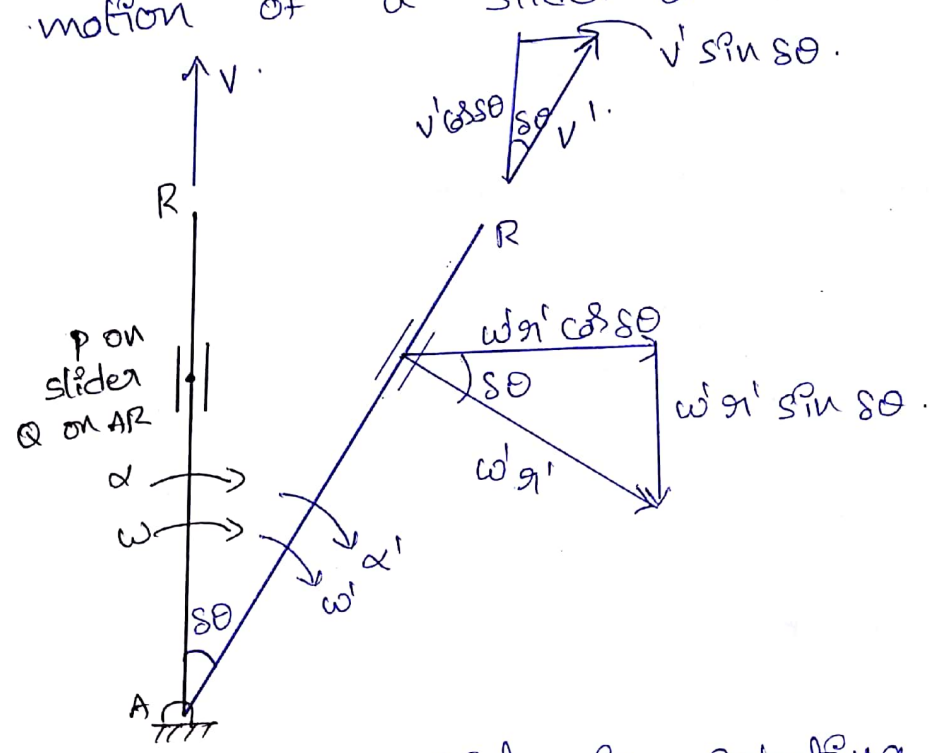 motion of a slider
V.
v' sin δθ.
v' cos δθ
δθ
v'.
R
R
P on
slider
Q on AR
ω'r' cos δθ
δθ
ω'r' sin δθ.
ω'r'
α
ω
α'
ω'
δθ
A